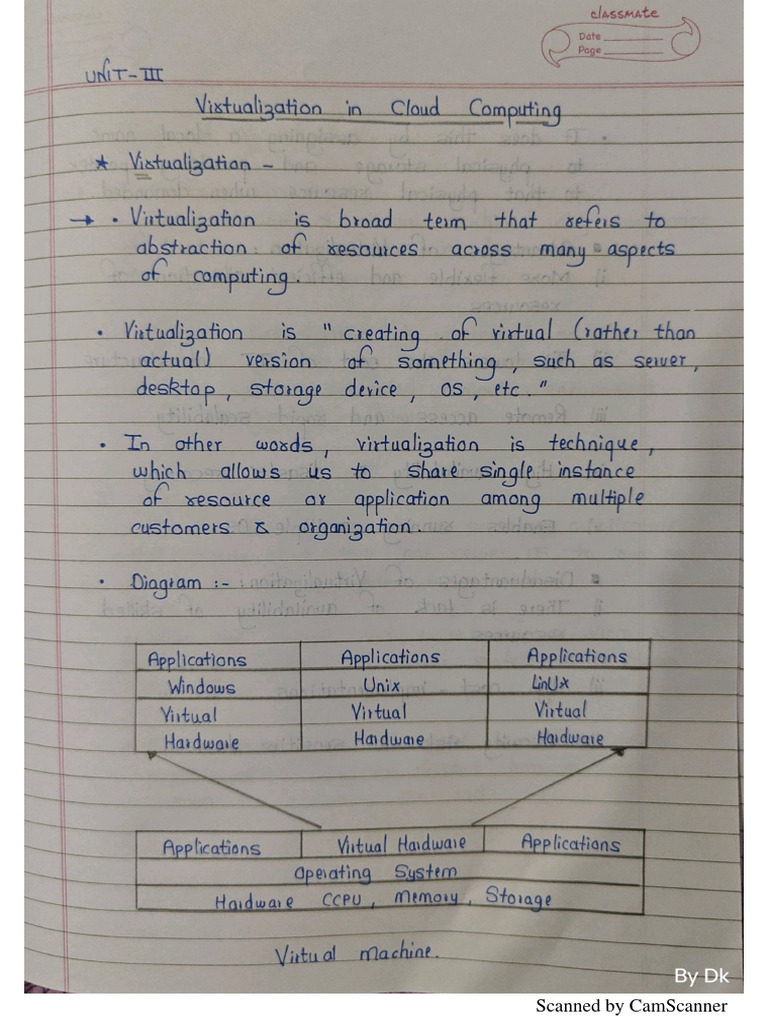 classmate
Date
Page
UNIT-III
Virtualization in Cloud Computing
★ Virtualization -
→ • Virtualization is broad term that refers to
abstraction of resources across many aspects
of computing.
• Virtualization is " creating of virtual (rather than
actual) version of something, such as server,
desktop, storage device, OS, etc."
• In other words, virtualization is technique,
which allows us to share single instance
of resource or application among multiple
customers & organization.
• Diagram :-
Applications Applications Applications
Windows Unix LinUx
Virtual Virtual Virtual
Hardware Hardware Hardware
Applications Virtual Hardware Applications
Operating System
Hardware CCPU, Memory, Storage
Virtual machine.
By Dk
Scanned by CamScanner